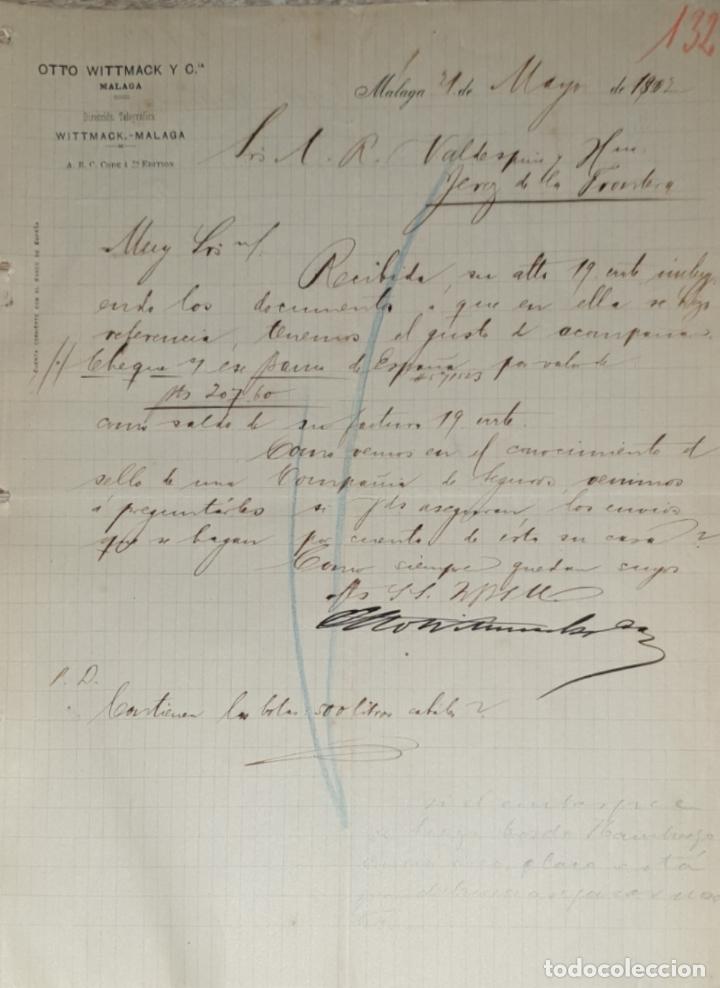 132
OTTO WITTMACK Y C.ia
MALAGA
Dirección Telegráfica
WITTMACK.-MALAGA
A. B. C. CODE 4 2ª EDITION
Málaga 21 de Mayo de 1902
Srs A. R. Valdespino y Hno
Jerez de la Frontera
CUENTA CORRIENTE CON EL BANCO DE ESPAÑA
Muy Srs ns/.
Recibida su atta 19 cnte incluy
endo los documentos a que en ella se hace
referencia, tenemos el gusto de acompañar
Cheque y ese Banco de España por valor de
Pts 207.60
como saldo de su factura 19 cnte.
Como vemos en el conocimiento el
sello de una Compañia de Seguros, venimos
á preguntarles si Vds aseguran los envios
que se hagan por cuenta de ésta su casa?
Como siempre quedan suyos
Otto Wittmack y Cia
P. D.
Contienen las botas 500 litros cabales?
si el embarque
se hace bordo Hamburgo
plaza está